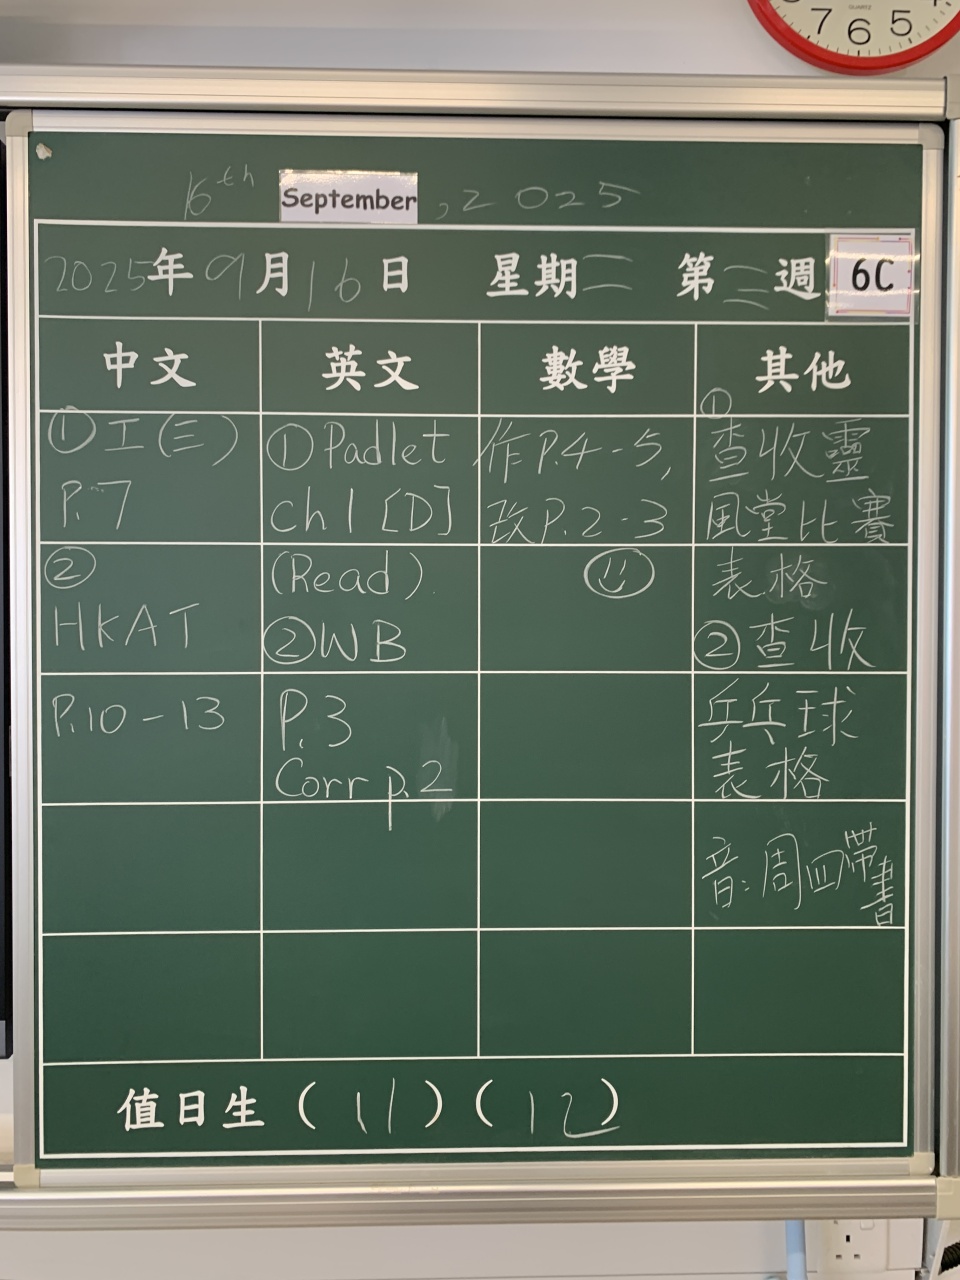 7 6 5
QUARTZ
16th September, 2025
2025年9月16日 星期二 第三週 6C
中文 英文 數學 其他
①工(三)
P.7
②
HKAT
P.10-13
①Padlet
ch1[D]
(Read)
②WB
P.3
Corr p.2
作P.4-5,
改P.2-3
①
查收靈
風堂比賽
表格
②查收
乒乓球
表格
音:周四帶書
值日生(11)(12)